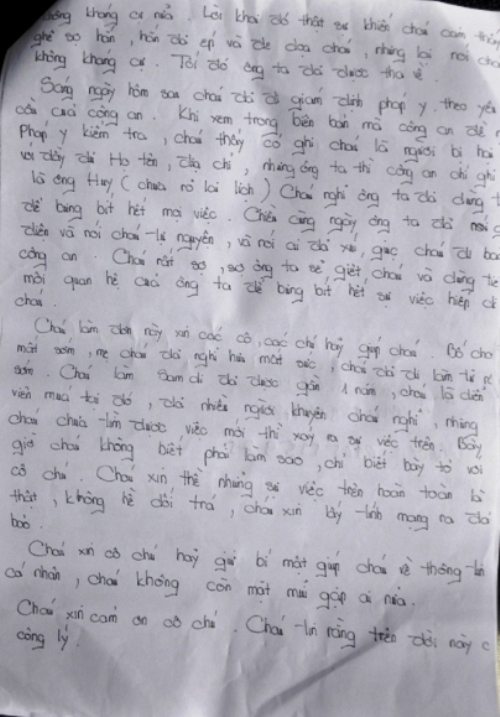 không kháng cự nữa. Lời khai đó thật sự khiến cháu cảm thấy
ghê sợ hơn, hắn đã ép và đe dọa cháu, nhưng lại nói cháu
không kháng cự. Tối đó ông ta đã được tha về.
Sáng ngày hôm sau cháu đã đi giám định pháp y theo yêu
cầu của công an. Khi xem trong biên bản mà công an để
Pháp y kiểm tra, cháu thấy có ghi cháu là người bị hại
với đầy đủ Họ tên, địa chỉ, nhưng ông ta thì công an chỉ ghi
là ông Huy (chưa rõ lai lịch) Cháu nghĩ ông ta đã dùng t
để bưng bít hết mọi việc. Chiều cùng ngày ông ta đã
diên và nói cháu tự nguyện, và nói ai đã xúi giục cháu đi báo
công an. Cháu rất sợ, sợ ông ta sẽ giết cháu và dùng tiề
mối quan hệ của ông ta để bưng bít hết sự việc hiếp d
cháu.
Cháu làm đơn này xin các cô, các chú hãy giúp cháu. Bố cháu
mất sớm, mẹ cháu đã nghỉ hưu mất sức, cháu đã đi làm từ rấ
sớm. Cháu làm ở đó đã được gần 1 năm, cháu là diễn
viên múa tại đó, đã nhiều người khuyên cháu nghỉ, nhưng
cháu chưa tìm được việc mới thì xảy ra sự việc trên. Bây
giờ cháu không biết phải làm sao, chỉ biết bày tỏ với
cô chú. Cháu xin thề những sự việc trên hoàn toàn là
thật, không hề dối trá, cháu xin lấy tính mạng ra đảm
bảo.
Cháu xin cô chú hãy giữ bí mật giúp cháu về thông tin
cá nhân, cháu không còn mặt mũi gặp ai nữa.
Cháu xin cám ơn cô chú. Cháu tin rằng trên đời này c
công lý.